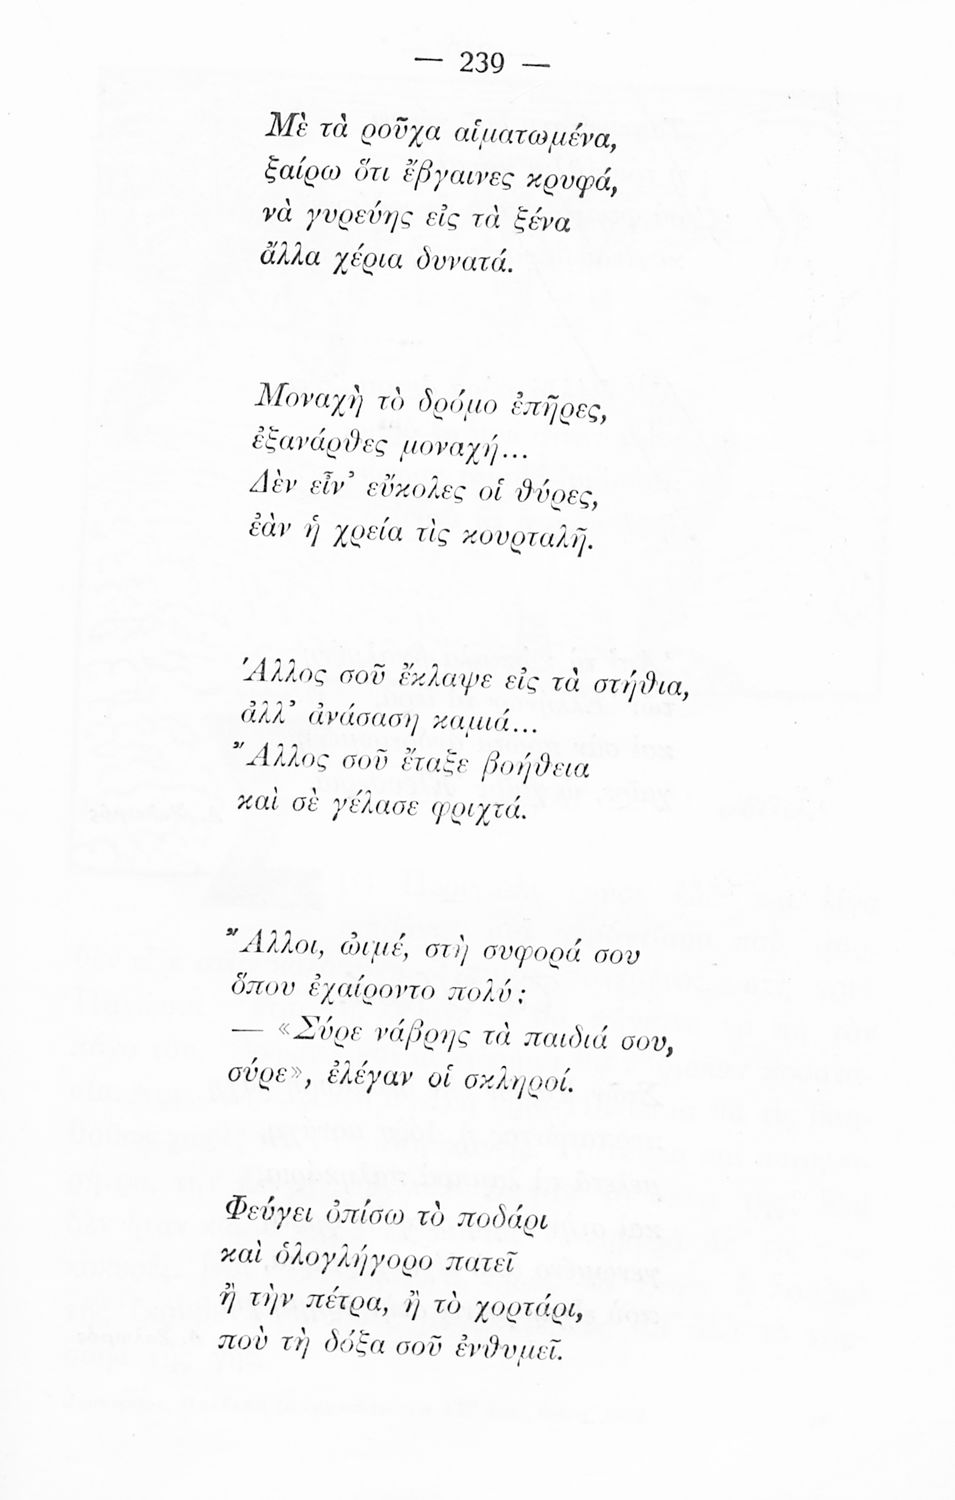 — 239 —
Μὲ τὰ ροῦχα αἱματωμένα,
ξαίρω ὅτι ἔβγαινες κρυφά,
νὰ γυρεύῃς εἰς τὰ ξένα
ἄλλα χέρια δυνατά.
Μοναχὴ τὸ δρόμο ἐπῆρες,
ἐξανάρθες μοναχή...
Δὲν εἶν᾽ εὔκολες οἱ θύρες,
ἐὰν ἡ χρεία τὶς κουρταλῇ.
Ἄλλος σοῦ ἔκλαψε εἰς τὰ στήθια,
ἀλλ᾽ ἀνάσαση καμιά...
Ἄλλος σοῦ ἔταξε βοήθεια
καὶ σὲ γέλασε φριχτά.
Ἄλλοι, ὠιμέ, στὴ συφορά σου
ὅπου ἐχαίροντο πολύ:
— «Σύρε νάβρῃς τὰ παιδιά σου,
σύρε», ἐλέγαν οἱ σκληροί.
Φεύγει ὀπίσω τὸ ποδάρι
καὶ ὁλογλήγορο πατεῖ
ἢ τὴν πέτρα, ἢ τὸ χορτάρι,
ποὺ τὴ δόξα σοῦ ἐνθυμεῖ.